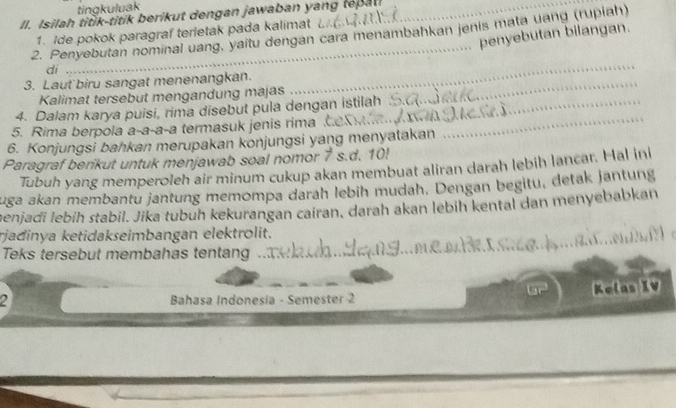 tingkuluak
II. Isilah titik-titik berikut dengan jawaban yang tepat!
1. Ide pokok paragraf terletak pada kalimat
2. Penyebutan nominal uang, yaitu dengan cara menambahkan jenis mata uang (rupiah)
di ... penyebutan bilangan.
3. Laut biru sangat menenangkan.
Kalimat tersebut mengandung majas ...
4. Dalam karya puisi, rima disebut pula dengan istilah sajak
5. Rima berpola a-a-a-a termasuk jenis rima
6. Konjungsi bahkan merupakan konjungsi yang menyatakan ...
Paragraf berikut untuk menjawab soal nomor 7 s.d. 10!
Tubuh yang memperoleh air minum cukup akan membuat aliran darah lebih lancar. Hal ini
uga akan membantu jantung memompa darah lebih mudah. Dengan begitu, detak jantung
enjadi lebih stabil. Jika tubuh kekurangan cairan, darah akan lebih kental dan menyebabkan
rjadinya ketidakseimbangan elektrolit.
Teks tersebut membahas tentang ... Tubuh yang
2
Bahasa Indonesia - Semester 2
Kelas IV